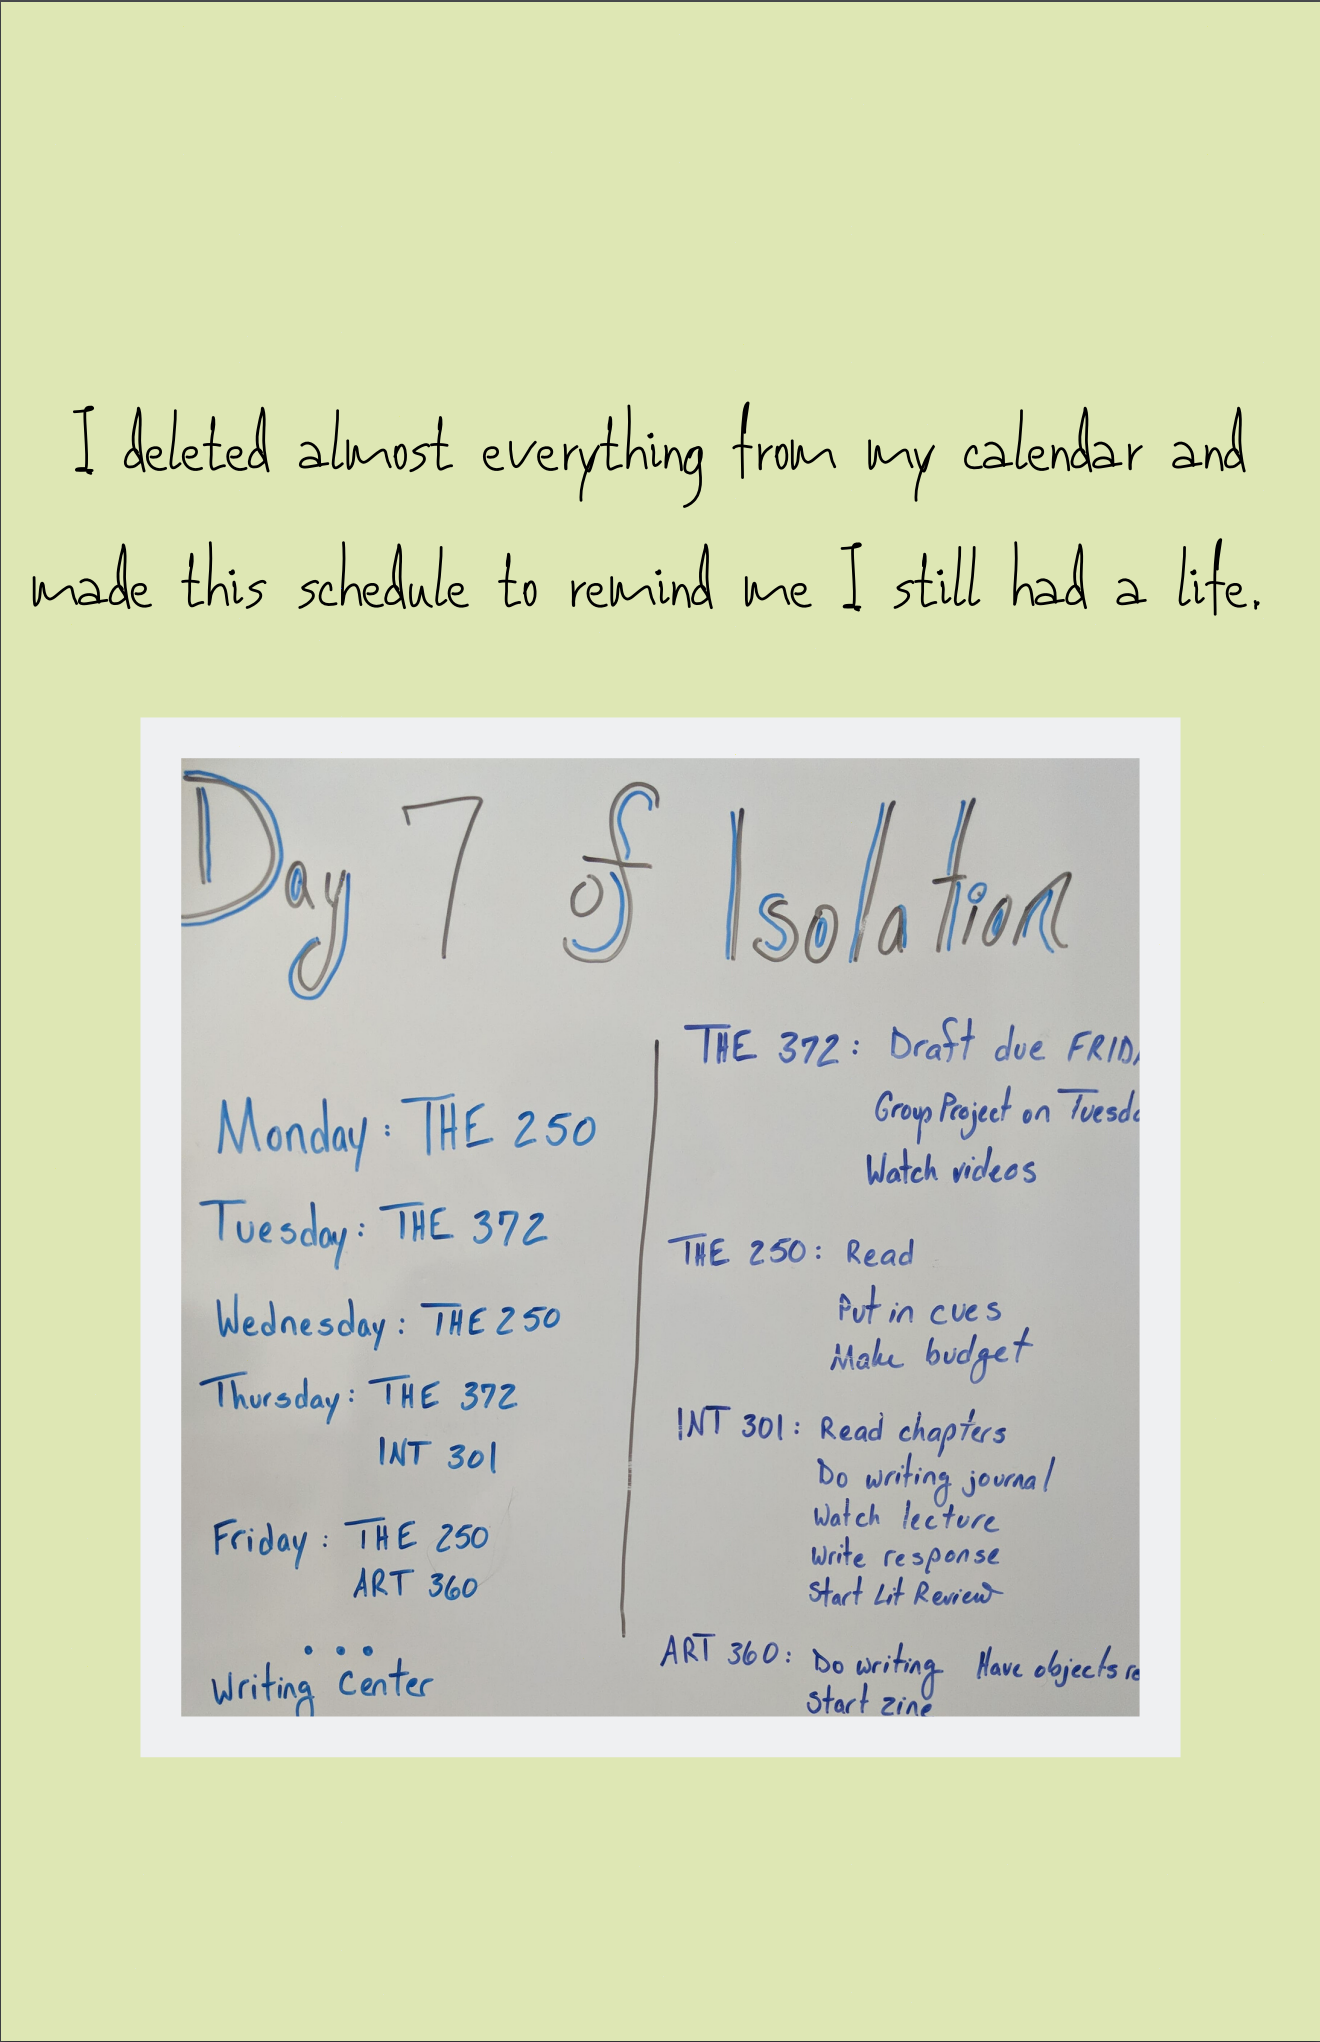 I deleted almost everything from my calendar and
made this schedule to remind me I still had a life.
Day 7 of Isolation
Monday: THE 250
Tuesday: THE 372
Wednesday: THE 250
Thursday: THE 372
INT 301
Friday: THE 250
ART 360
...
Writing Center
THE 372: Draft due
Group Project on
Watch videos
THE 250: Read
Put in cues
Make budget
INT 301: Read chapters
Do writing journal
Watch lecture
Write response
Start Lit Review
ART 360: Do writing Have objects
Start zine